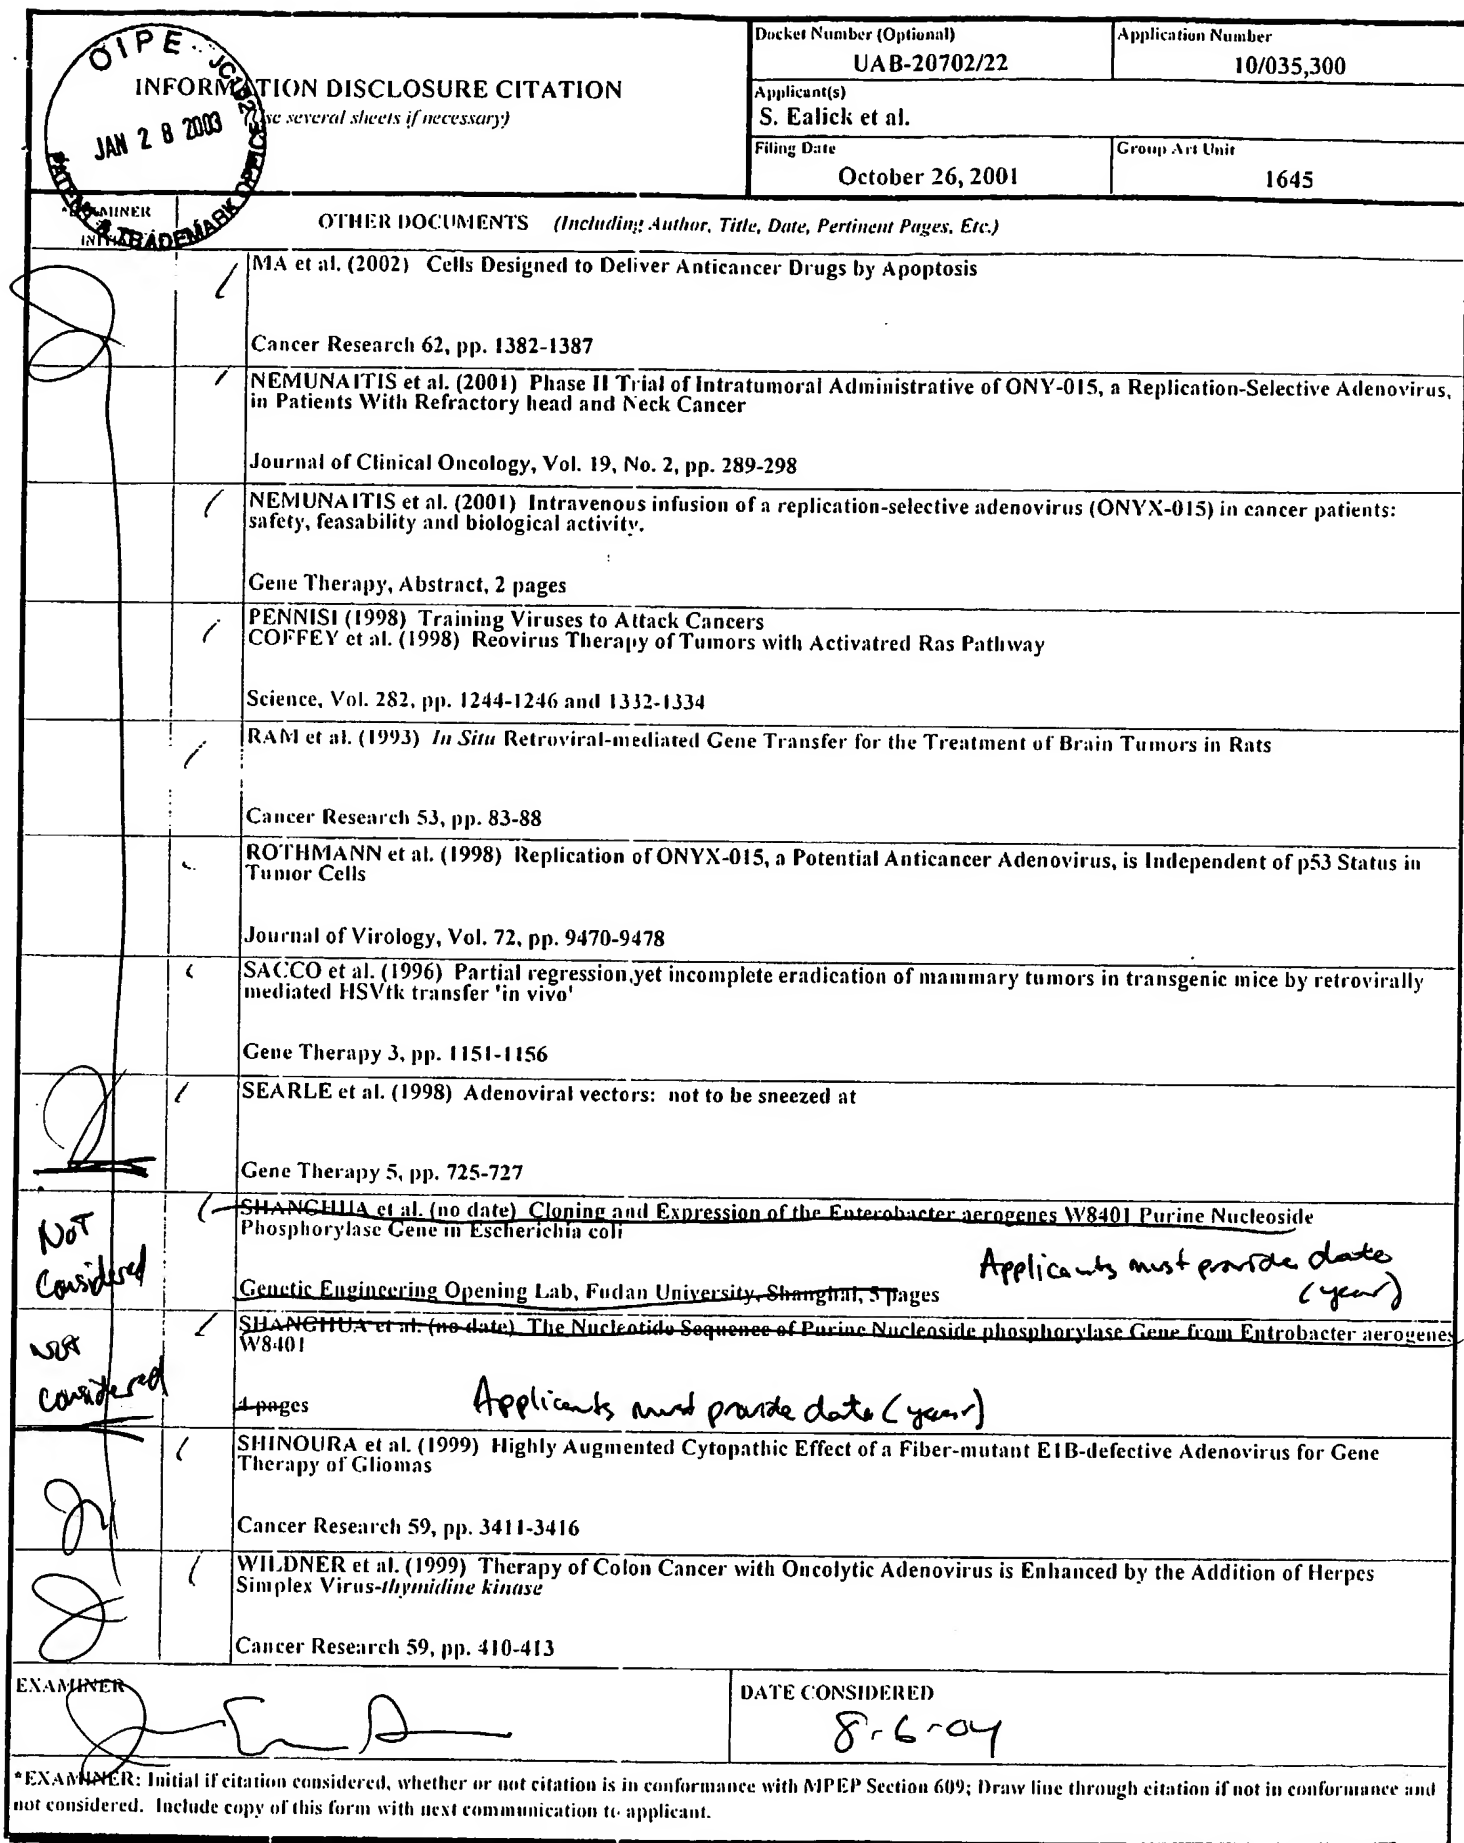 OIPE JC192
JAN 28 2003
PATENT & TRADEMARK OFFICE
INFORMATION DISCLOSURE CITATION
(Use several sheets if necessary)
Docket Number (Optional)
UAB-20702/22
Application Number
10/035,300
Applicant(s)
S. Ealick et al.
Filing Date
October 26, 2001
Group Art Unit
1645
*EXAMINER
INITIAL
OTHER DOCUMENTS (Including Author, Title, Date, Pertinent Pages, Etc.)
MA et al. (2002) Cells Designed to Deliver Anticancer Drugs by Apoptosis
Cancer Research 62, pp. 1382-1387
NEMUNAITIS et al. (2001) Phase II Trial of Intratumoral Administrative of ONY-015, a Replication-Selective Adenovirus,
in Patients With Refractory head and Neck Cancer
Journal of Clinical Oncology, Vol. 19, No. 2, pp. 289-298
NEMUNAITIS et al. (2001) Intravenous infusion of a replication-selective adenovirus (ONYX-015) in cancer patients:
safety, feasability and biological activity.
Gene Therapy, Abstract, 2 pages
PENNISI (1998) Training Viruses to Attack Cancers
COFFEY et al. (1998) Reovirus Therapy of Tumors with Activatred Ras Pathway
Science, Vol. 282, pp. 1244-1246 and 1332-1334
RAM et al. (1993) In Situ Retroviral-mediated Gene Transfer for the Treatment of Brain Tumors in Rats
Cancer Research 53, pp. 83-88
ROTHMANN et al. (1998) Replication of ONYX-015, a Potential Anticancer Adenovirus, is Independent of p53 Status in
Tumor Cells
Journal of Virology, Vol. 72, pp. 9470-9478
SACCO et al. (1996) Partial regression,yet incomplete eradication of mammary tumors in transgenic mice by retrovirally
mediated HSVtk transfer 'in vivo'
Gene Therapy 3, pp. 1151-1156
SEARLE et al. (1998) Adenoviral vectors: not to be sneezed at
Gene Therapy 5, pp. 725-727
Not
Considered
SHANGHUA et al. (no date) Cloning and Expression of the Enterobacter aerogenes W8401 Purine Nucleoside
Phosphorylase Gene in Escherichia coli
Applicants must provide date
(year)
Genetic Engineering Opening Lab, Fudan University, Shanghai, 5 pages
Not
considered
SHANGHUA et al. (no date) The Nucleotide Sequence of Purine Nucleoside phosphorylase Gene from Entrobacter aerogenes
W8401
4 pages
Applicants must provide date (year)
SHINOURA et al. (1999) Highly Augmented Cytopathic Effect of a Fiber-mutant E1B-defective Adenovirus for Gene
Therapy of Gliomas
Cancer Research 59, pp. 3411-3416
WILDNER et al. (1999) Therapy of Colon Cancer with Oncolytic Adenovirus is Enhanced by the Addition of Herpes
Simplex Virus-thymidine kinase
Cancer Research 59, pp. 410-413
EXAMINER
DATE CONSIDERED
8-6-04
*EXAMINER: Initial if citation considered, whether or not citation is in conformance with MPEP Section 609; Draw line through citation if not in conformance and
not considered. Include copy of this form with next communication to applicant.